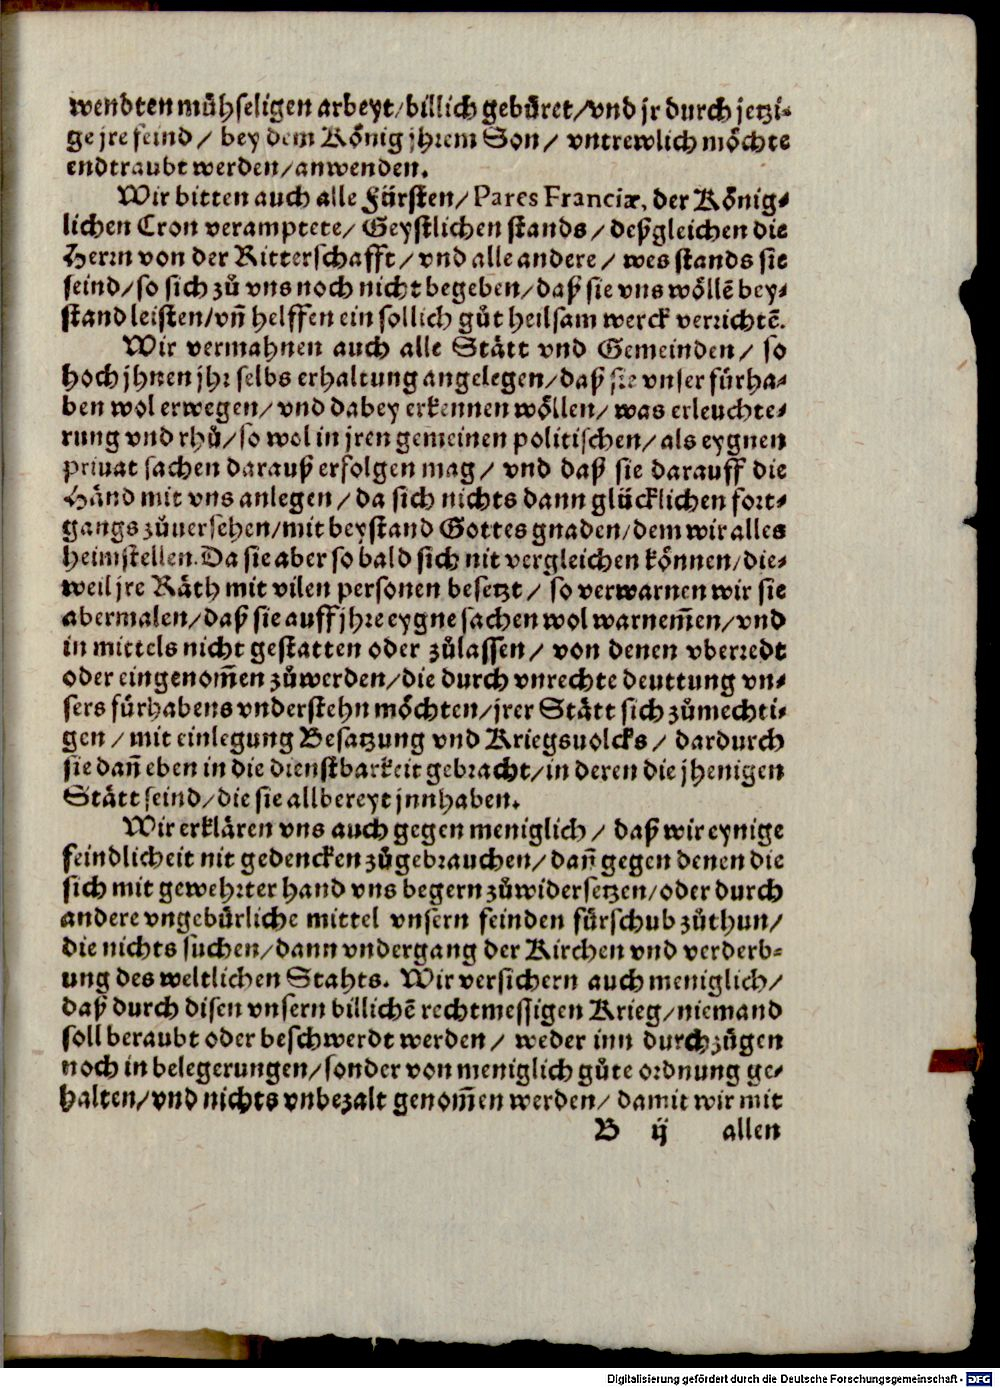 wendten mühseligen arbeyt/billich gebüret/vnd jr durch jetzi⸗
ge jre feind / bey dem König jhrem Son / vntrewlich möchte
endtraubt werden/anwenden.
Wir bitten auch alle Fürsten/ Pares Franciæ, der König⸗
lichen Cron veramptete/ Geystlichen stands / deßgleichen die
Herrn von der Ritterschafft/ vnd alle andere / wes stands sie
seind/so sich zů vns noch nicht begeben/daß sie vns wöllē bey⸗
stand leisten/vñ helffen ein sollich gůt heilsam werck verrichtē.
Wir vermahnen auch alle Stätt vnd Gemeinden/ so
hoch jhnen jhr selbs erhaltung angelegen/daß sie vnser fürha⸗
ben wol erwegen/ vnd dabey erkennen wöllen/ was erleuchte⸗
rung vnd rhů/so wol in jren gemeinen politischen/ als eygnen
priuat sachen darauß erfolgen mag/ vnd daß sie darauff die
Händ mit vns anlegen / da sich nichts dann glücklichen fort⸗
gangs zůuersehen/mit beystand Gottes gnaden/dem wir alles
heimstellen. Da sie aber so bald sich nit vergleichen können/die⸗
weil jre Räth mit vilen personen besetzt/ so verwarnen wir sie
abermalen/daß sie auff jhre eygne sachen wol warnem̄en/vnd
in mittels nicht gestatten oder zůlassen/ von denen vberredt
oder eingenom̄en zůwerden/die durch vnrechte deuttung vn⸗
sers fürhabens vnderstehn möchten/jrer Stätt sich zůmechti⸗
gen / mit einlegung Besatzung vnd Kriegsuolcks/ dardurch
sie dañ eben in die dienstbarkeit gebracht/in deren die jhenigen
Stätt seind/die sie allbereyt jnnhaben.
Wir erklären vns auch gegen meniglich / daß wir eynige
feindlicheit nit gedencken zůgebrauchen/dañ gegen denen die
sich mit gewehrter hand vns begern zůwidersetzen/oder durch
andere vngebürliche mittel vnsern feinden fürschub zůthun/
die nichts suchen/dann vndergang der Kirchen vnd verderb⸗
ung des weltlichen Stahts. Wir versichern auch meniglich/
daß durch disen vnsern billichē rechtmessigen Krieg/niemand
soll beraubt oder beschwerdt werden/ weder inn durchzügen
noch in belegerungen/sonder von meniglich gůte ordnung ge⸗
halten/vnd nichts vnbezalt genom̄en werden/ damit wir mit
B ij allen
Digitalisierung gefördert durch die Deutsche Forschungsgemeinschaft - DFG